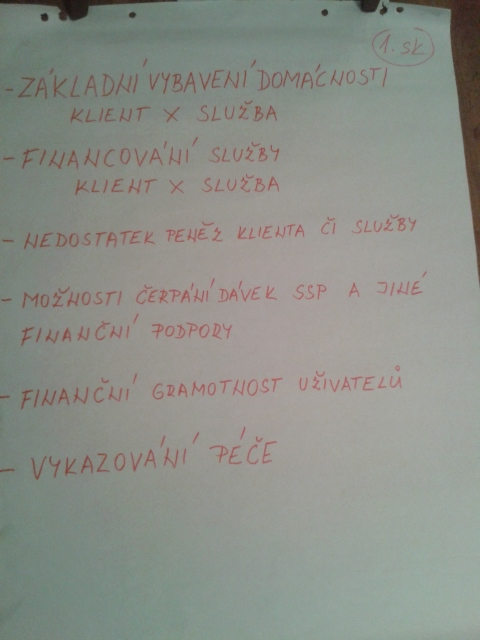 1. sk
- ZÁKLADNÍ VYBAVENÍ DOMÁCNOSTI
KLIENT X SLUŽBA
- FINANCOVÁNÍ SLUŽBY
KLIENT X SLUŽBA
- NEDOSTATEK PENĚZ KLIENTA ČI SLUŽBY
- MOŽNOSTI ČERPÁNÍ DÁVEK SSP A JINÉ
FINANČNÍ PODPORY
- FINANČNÍ GRAMOTNOST UŽIVATELŮ
- VYKAZOVÁNÍ PÉČE